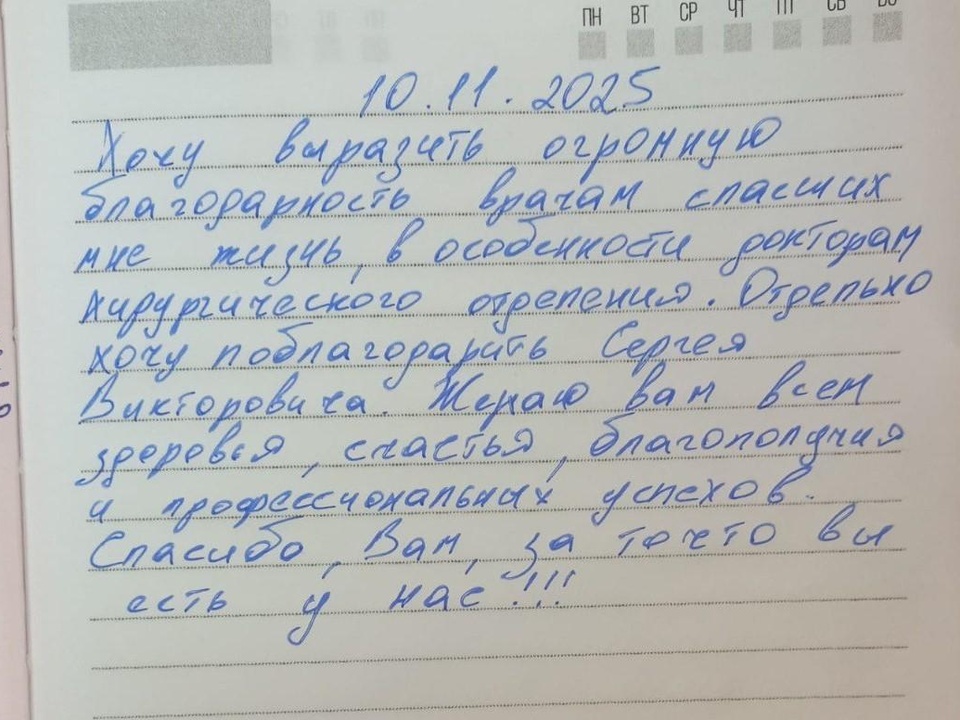 ПН ВТ СР ЧТ ПТ СБ ВС
10.11.2025
Хочу выразить огромную
благодарность врачам спасших
мне жизнь, в особенности докторам
хирургического отделения. Отдельно
хочу поблагодарить Сергея
Викторовича. Желаю вам всем
здоровья, счастья, благополучия
и профессиональных успехов.
Спасибо, Вам, за точто вы
есть у нас!!!